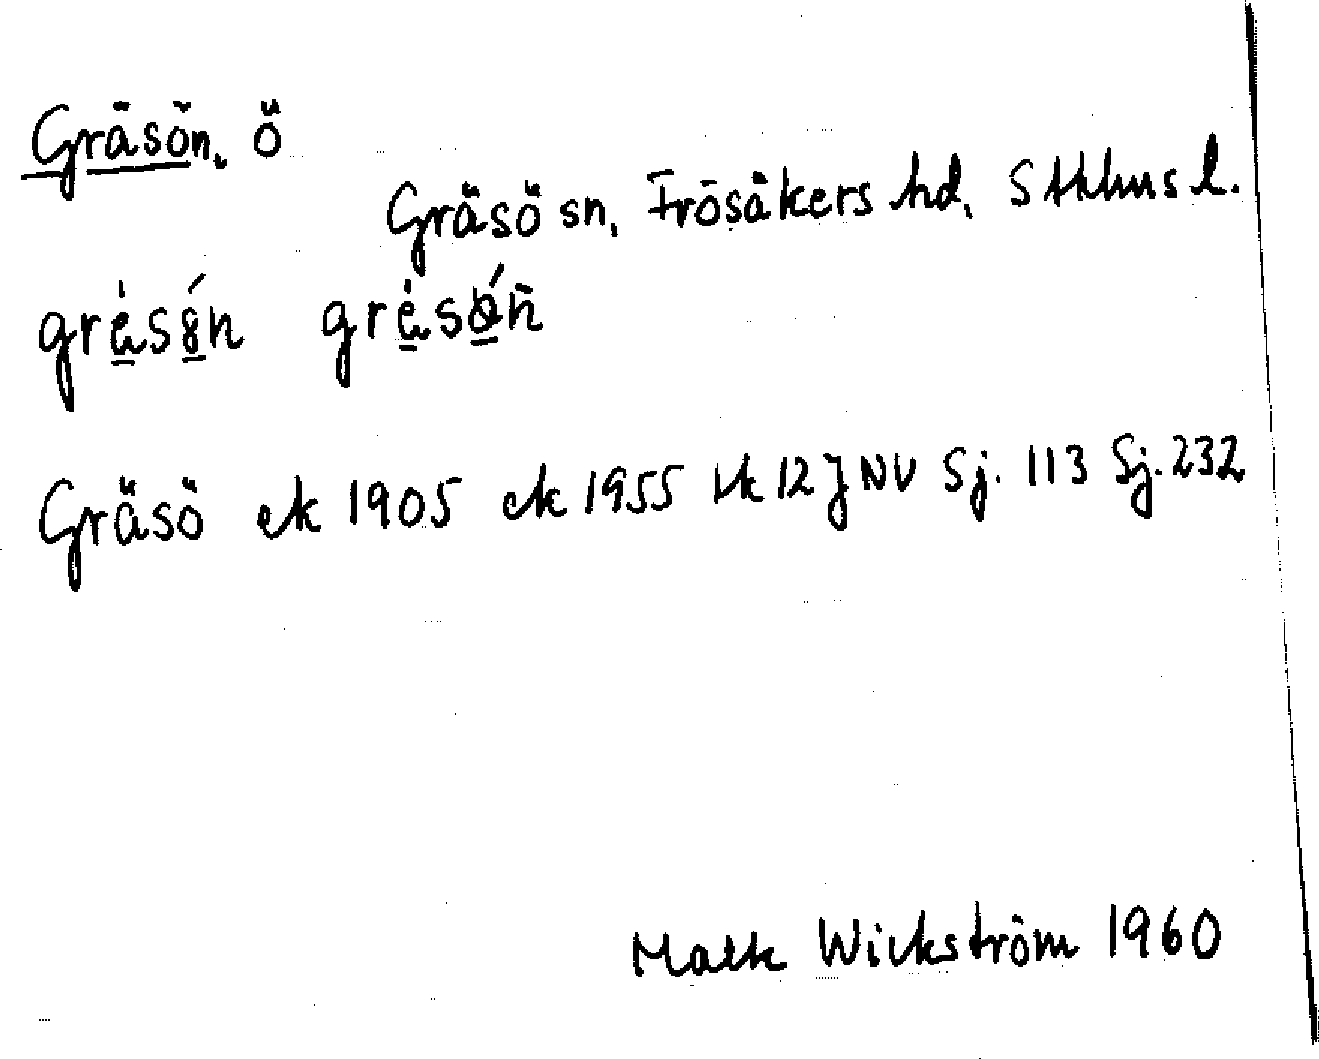 Gräsön, ö
Gräsö sn, Frösåkers hd, Sthlms l.
gräsön gräsön
Gräsö ek 1905 ek 1955 12J NV Sj. 113 Sj. 232
Wickström 1960